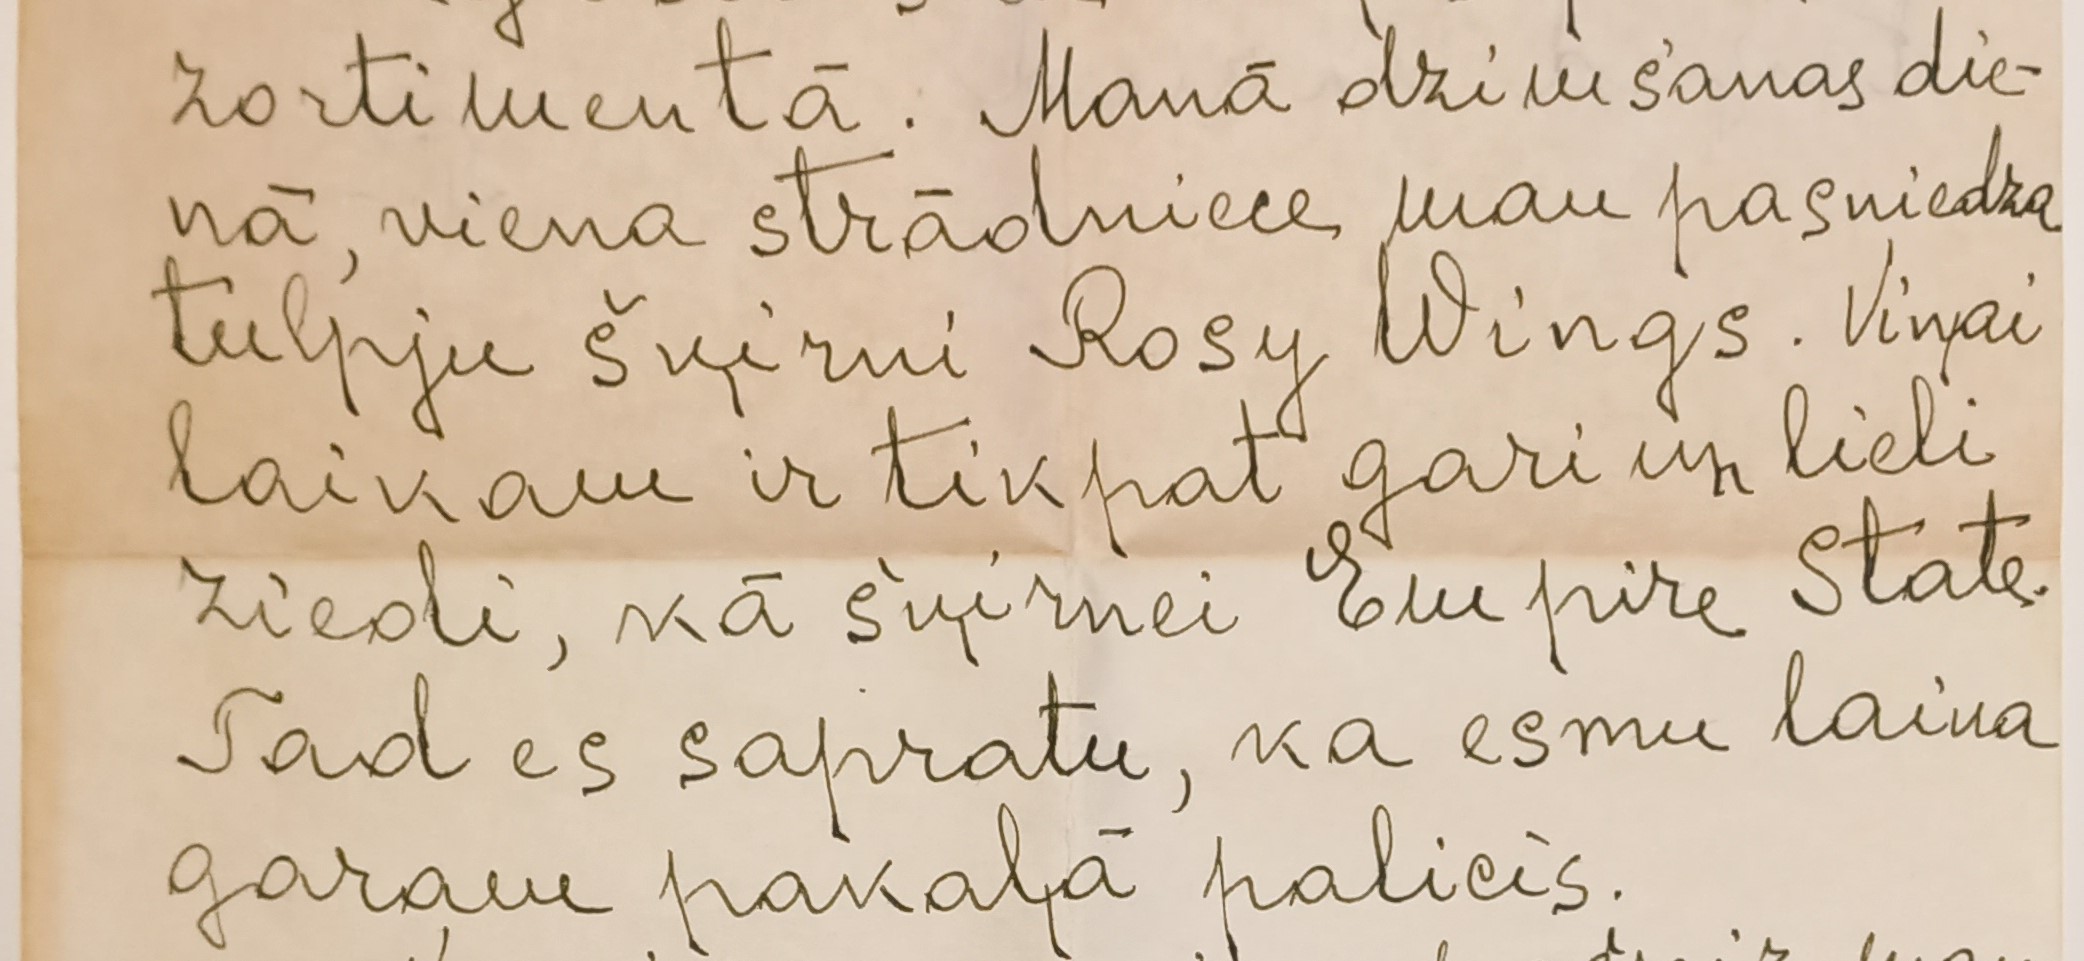 zortimentā. Manā dzimšanas die-
nā, viena strādniece man pasniedza
tulpju šķirni Rosy Wings. Viņai
laikam ir tikpat gari un lieli
ziedi, kā šķirnei Empire State.
Tad es sapratu, ka esmu laika
garam pakaļā palicis.